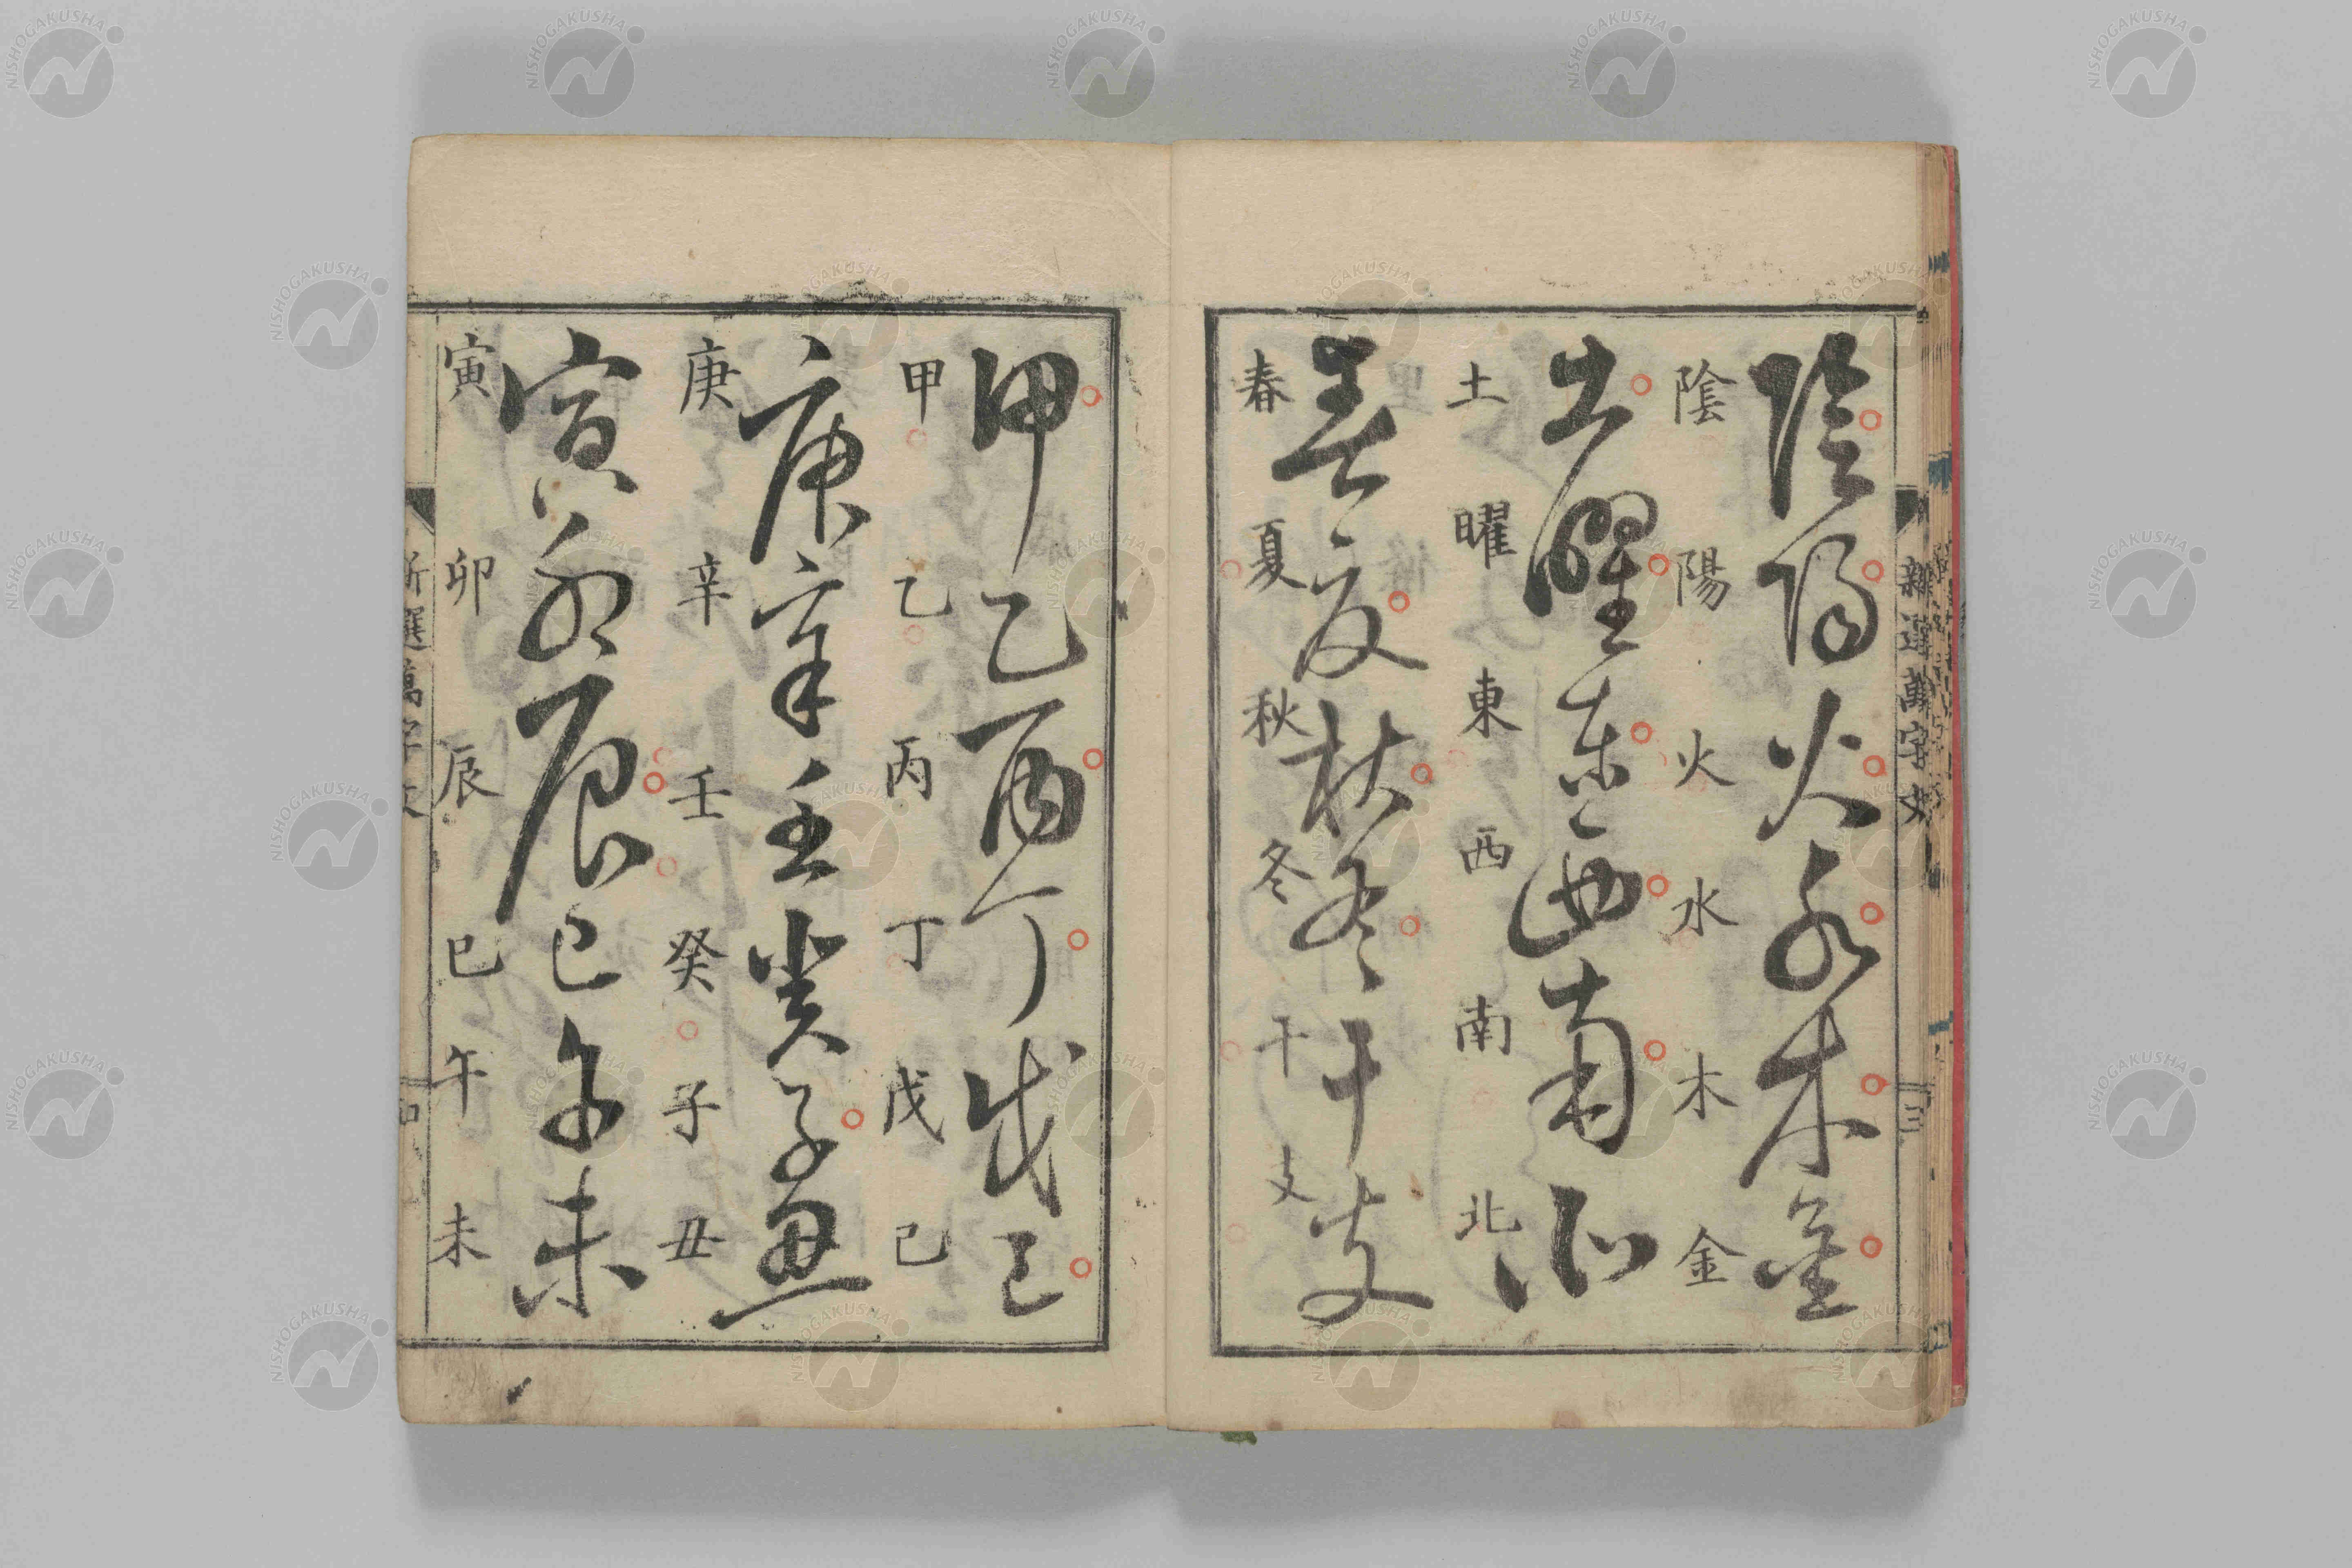 新選萬字文
三
陰陽火水木金
陰陽火水木金
土曜東西南北
土曜東西南北
春夏秋冬干支
春夏秋冬干支
甲乙丙丁戊己
甲乙丙丁戊己
庚辛壬癸子丑
庚辛壬癸子丑
寅卯辰巳午未
寅卯辰巳午未
新選萬字文
四
NISHOGAKUSHA